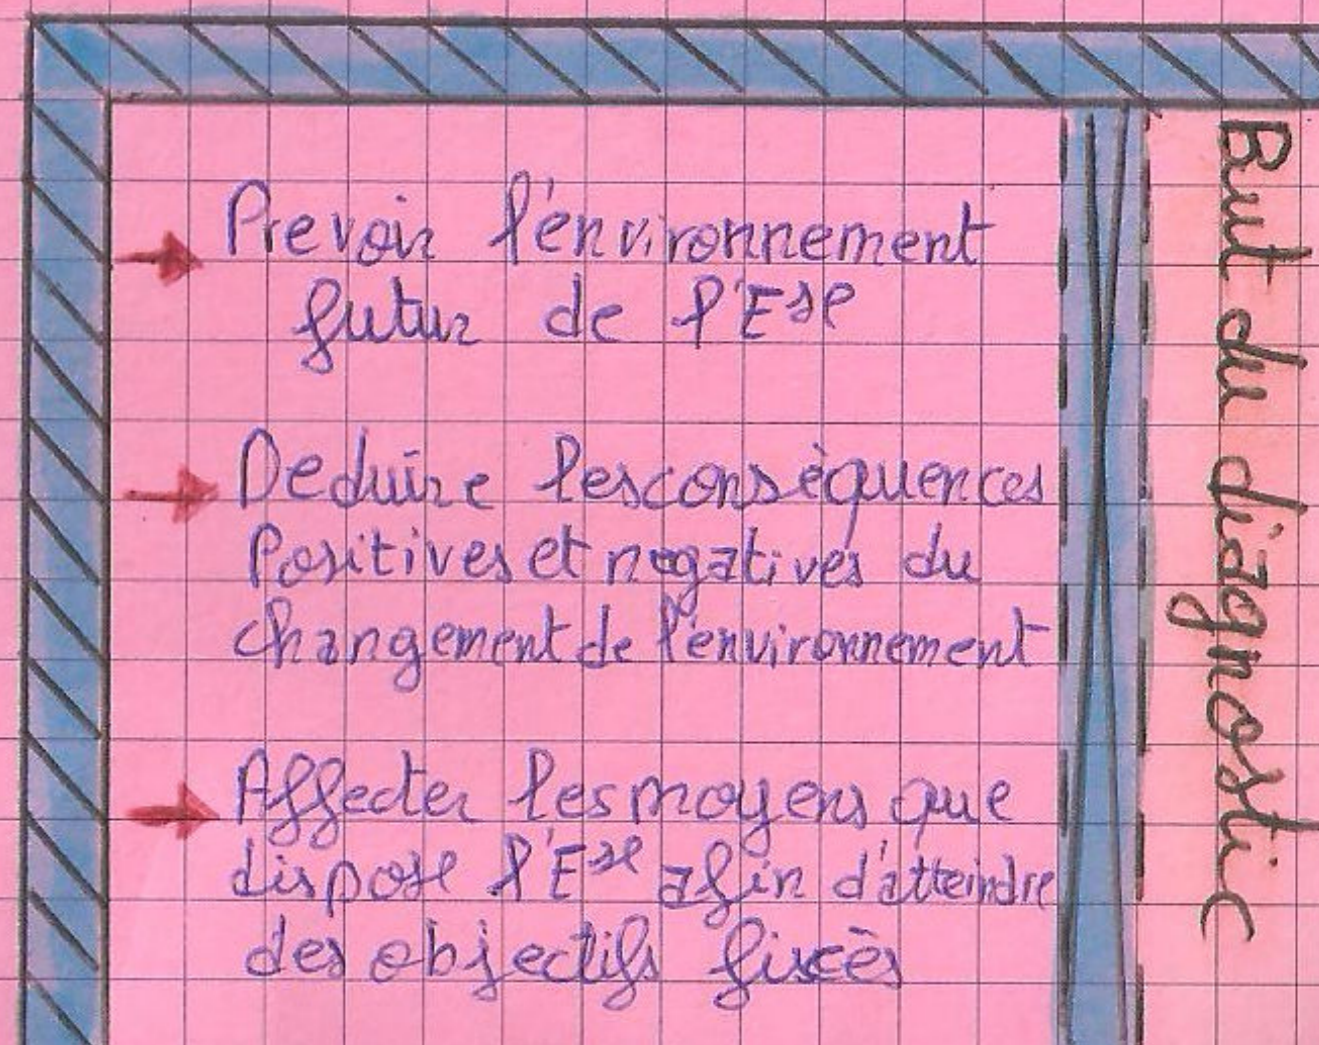 But du diagnostic
Prevoir l'énvironnement
futur de l'Ese
Deduire les conséquences
Positives et negatives du
changement de l'environnement
Affecter les moyens que
dispose l'Ese afin d'atteindre
des objectifs fixcès